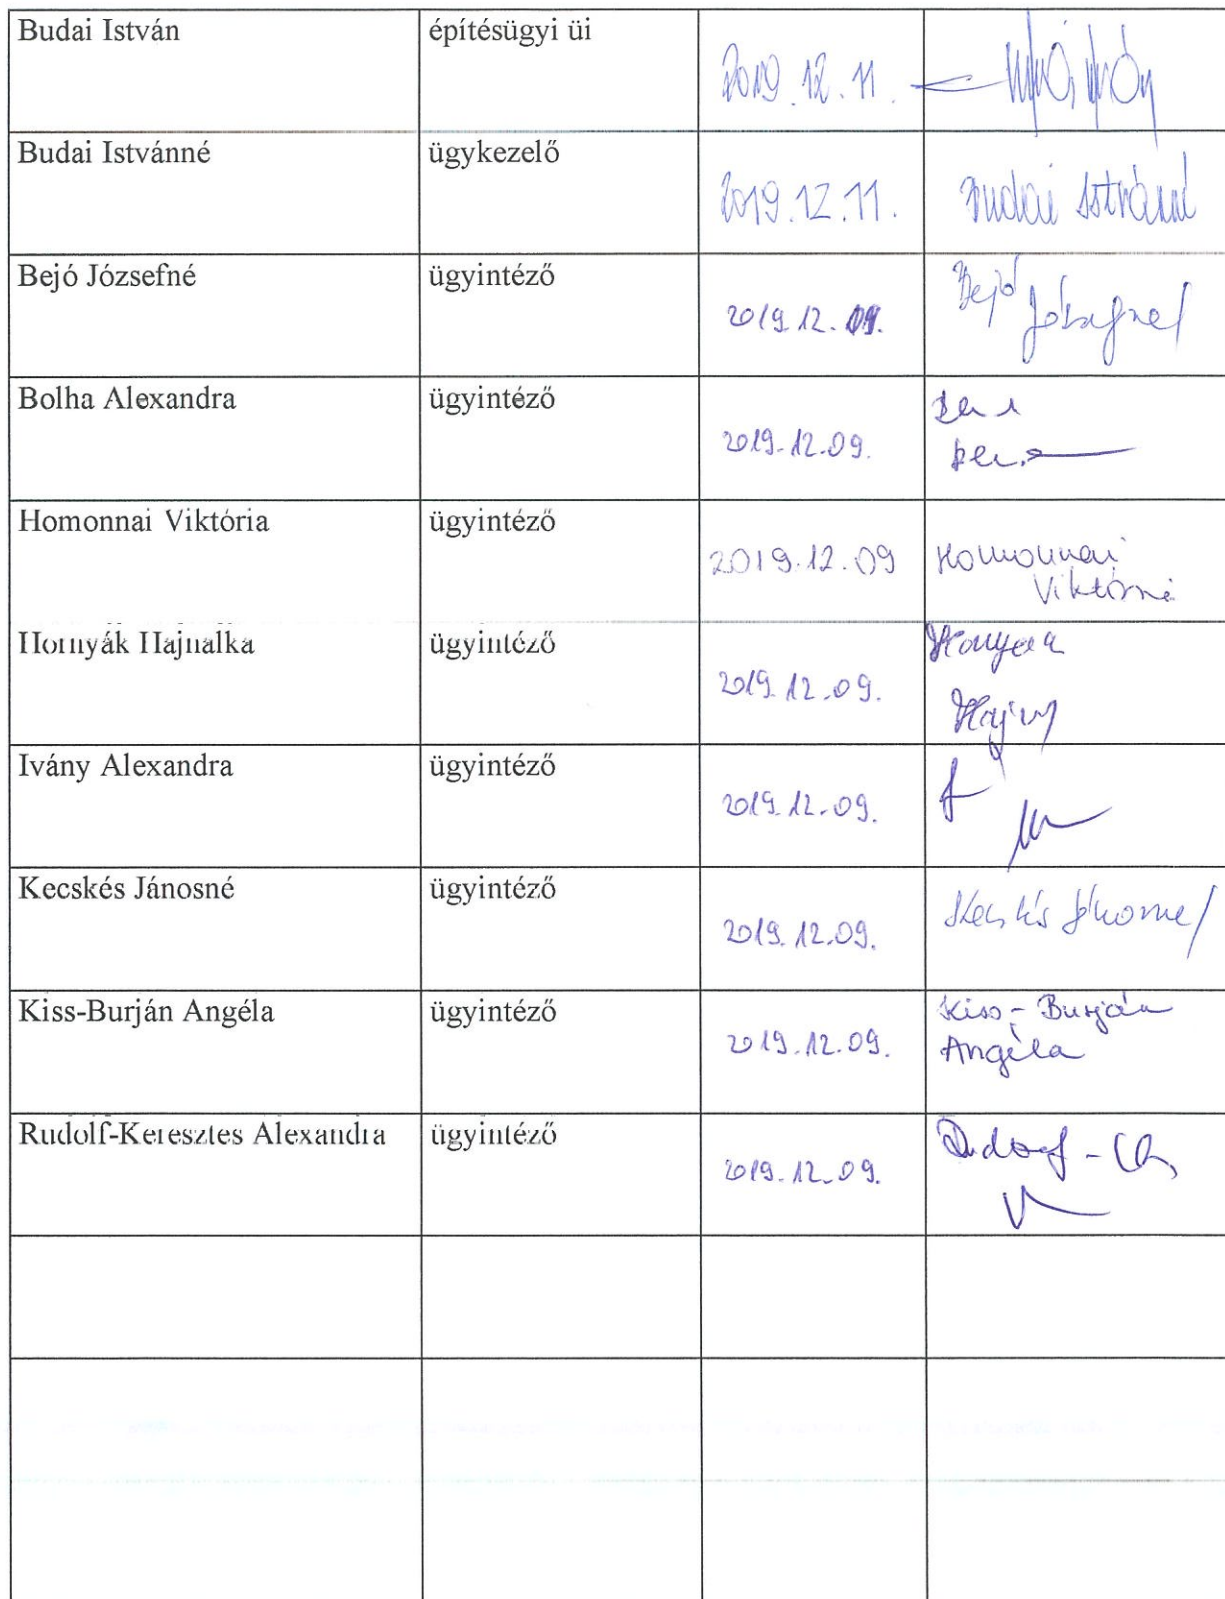 Budai István építésügyi üi 2019.12.11.
Budai Istvánné ügykezelő 2019.12.11. Budai Istvánné
Bejó Józsefné ügyintéző 2019.12.09. Bejó Józsefné
Bolha Alexandra ügyintéző 2019.12.09.
Homonnai Viktória ügyintéző 2019.12.09 Homonnai
Viktória
Hornyák Hajnalka ügyintéző 2019.12.09. Hornyák
Ivány Alexandra ügyintéző 2019.12.09.
Kecskés Jánosné ügyintéző 2019.12.09. Kecskés Jánosné
Kiss-Burján Angéla ügyintéző 2019.12.09. Kiss-Burján
Angéla
Rudolf-Keresztes Alexandra ügyintéző 2019.12.09. Rudolf-